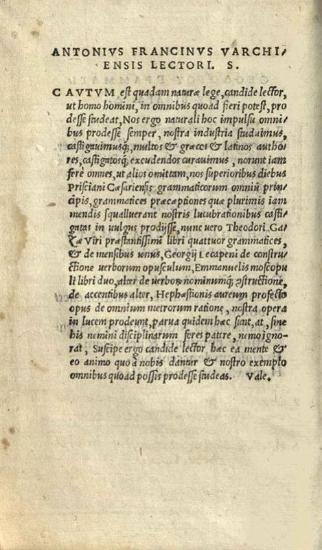 ANTONIVS FRANCINVS VARCHI/
ENSIS LECTORI. S.
CAVTVM est quadam naturæ lege, candide lector,
ut homo homini, in omnibus quoad fieri potest, pro
desse studeat, Nos ergo naturali hoc impulsu omni
bus prodesse semper, nostra industria studuimus,
castigauimusq; multos & græcos & latinos autho/
res, castigatosq; excudendos curauimus, norunt iam
fere omnes, ut alios omittam, nos superioribus diebus
Prisciani Cæsariensis grammaticorum omniū prin/
cipis, grammatices præceptiones quæ plurimis iam
mendis squalluerant nostris lucubrationibus casti/
gatas in uulgus prodijsse, nunc uero Theodori. Ga/
zæ Viri præstantissimi libri quattuor grammatices,
& de mensibus unus, Georgij Lecapeni de constru/
ctione uerborum opusculum, Emmanuelis moscopu
li libri duo, alter de uerborū nominumq; cōstructione,
de accentibus alter, Hephæstionis aureum profecto
opus de omnium metrorum ratione, nostra opera
in lucem prodeunt, parua quidem hæc sunt, at, sine
his nemini disciplinarum fores patere, nemo igno/
rat, Suscipe ergo candide lector hæc ea mente &
eo animo quo à nobis dantur & nostro exemplo
omnibus quoad possis prodesse studeas. Vale.